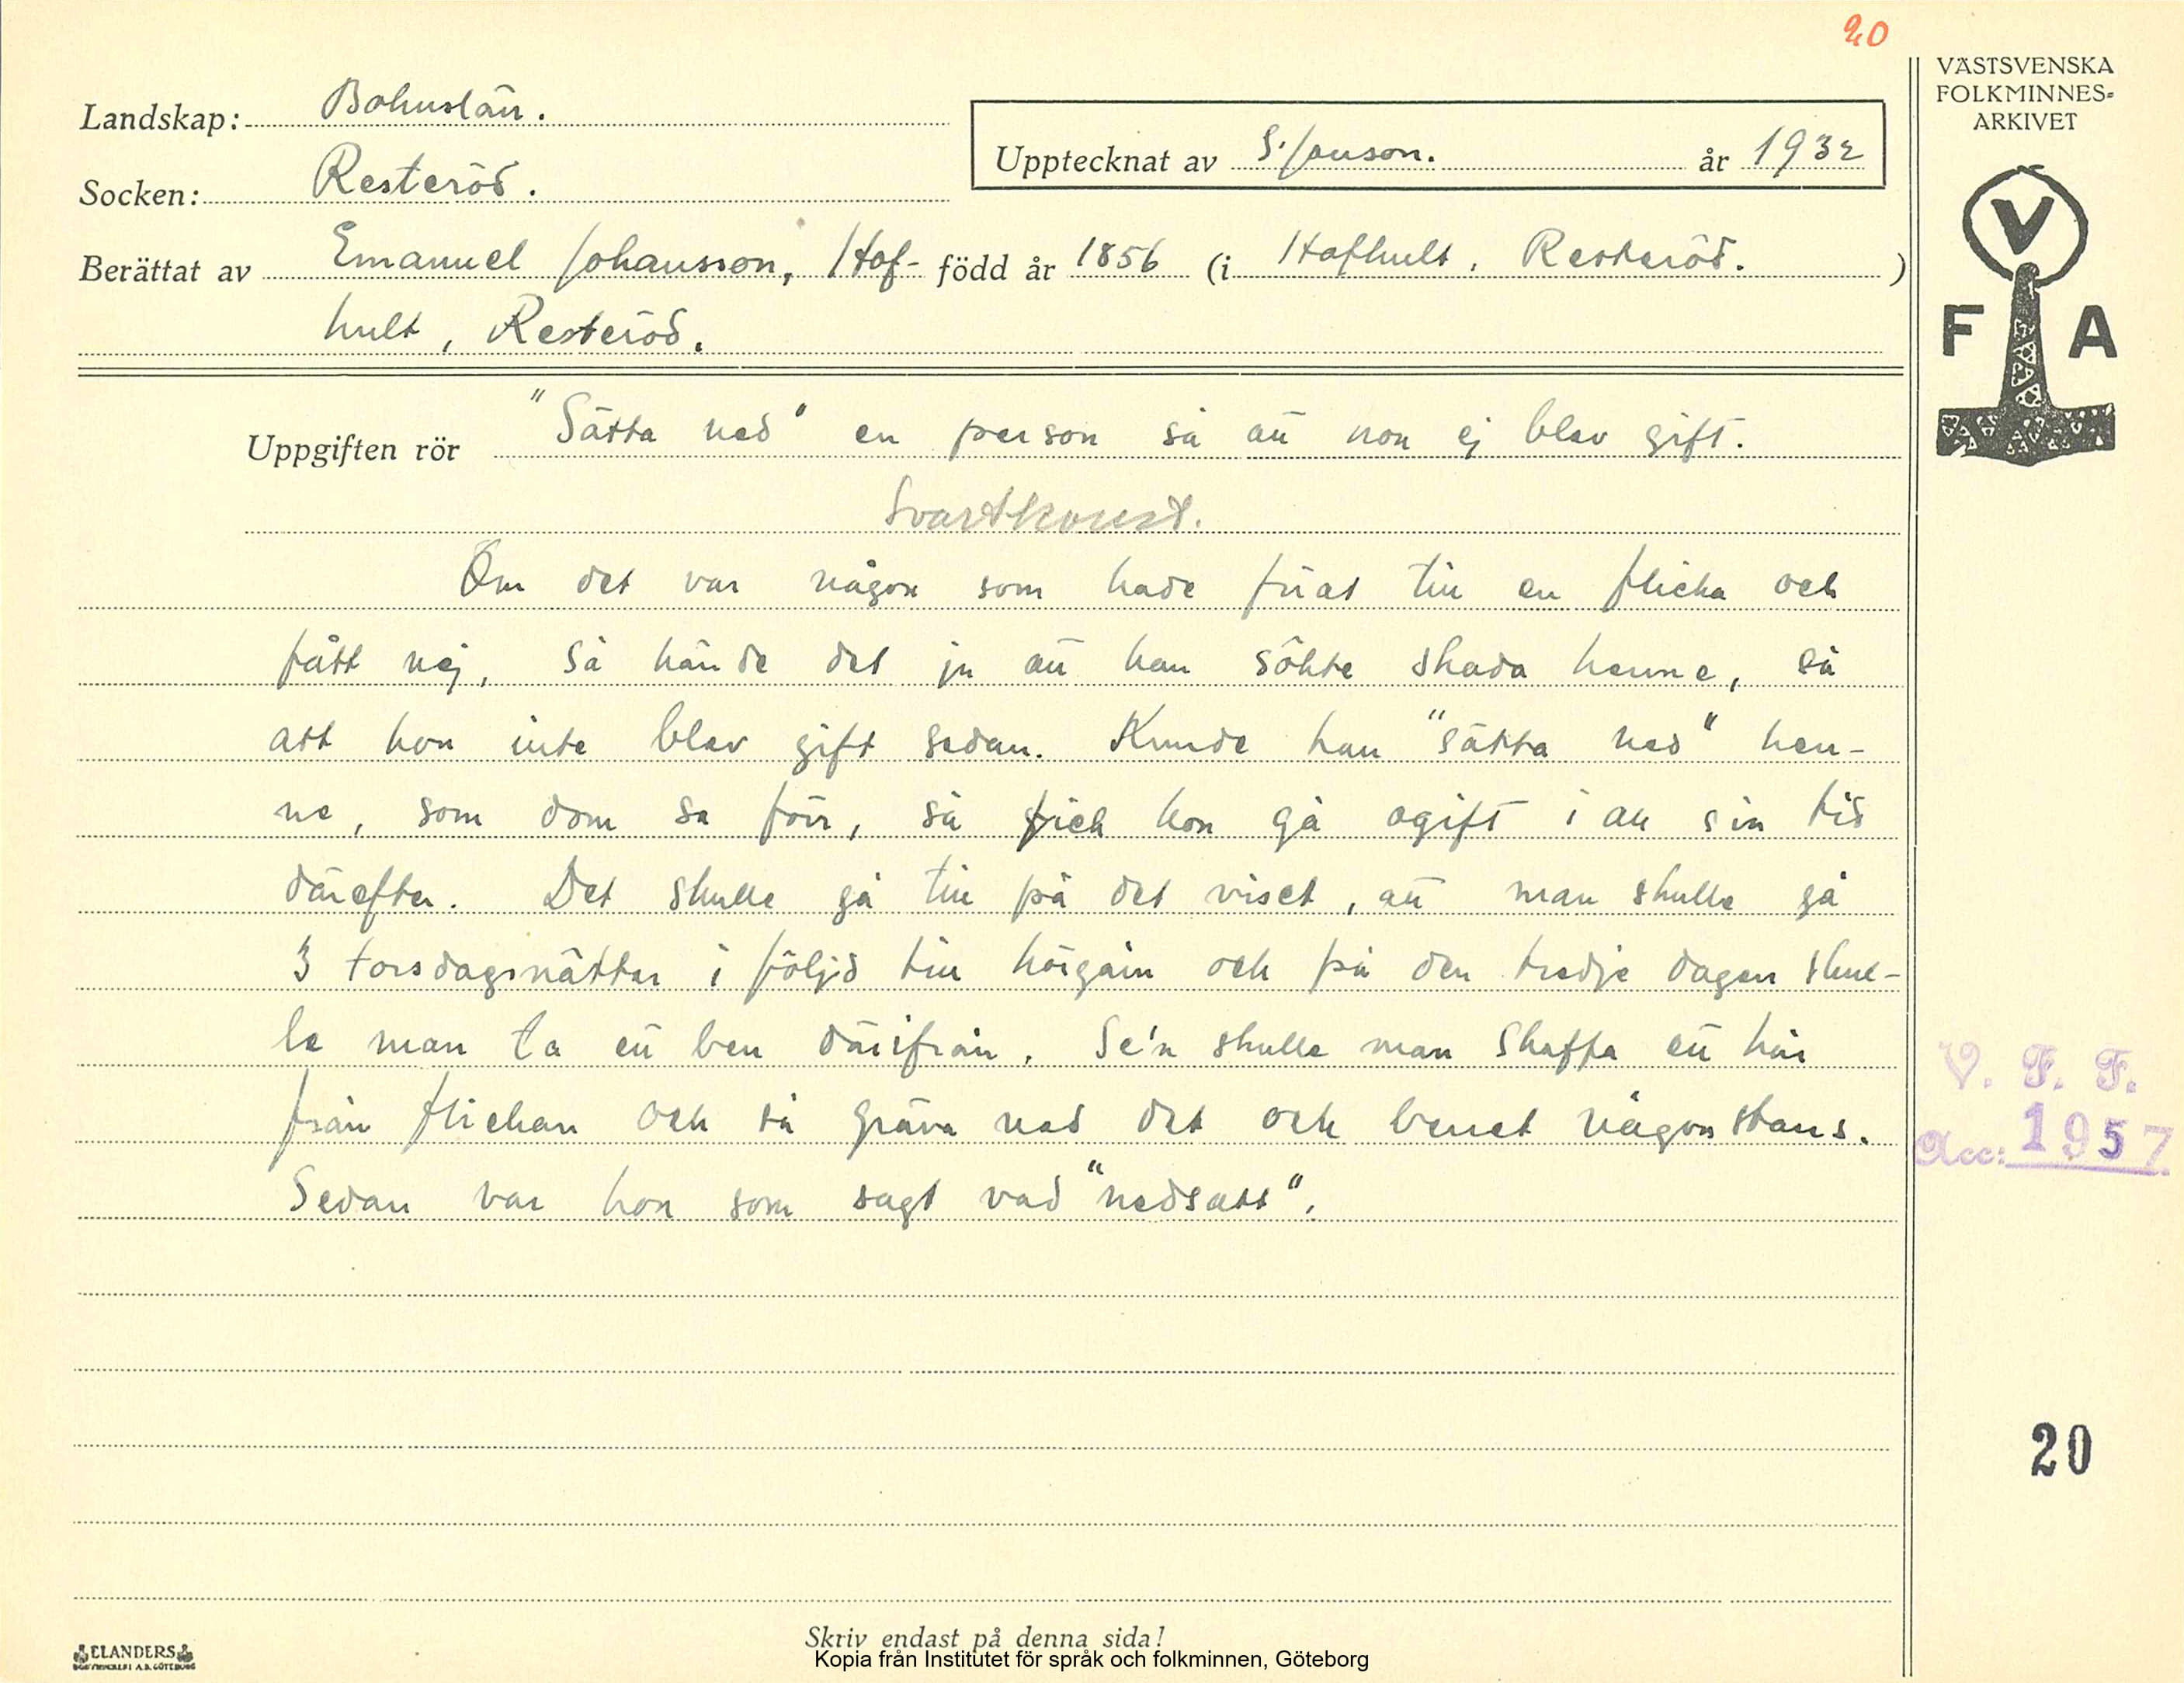 20
VÄSTSVENSKA
FOLKMINNES-
ARKIVET
Landskap: Bohuslän.
Upptecknat av S. Janson. år 1932
Socken: Resteröd.
Berättat av Emanuel Johansson, Hof- född år 1856 (i Hofhult, Resteröd. )
hult, Resteröd.
V
F A
Uppgiften rör "Sätta ned" en person så att hon ej blev gift.
Svartkonst.
Om det var någon som hade friat till en flicka och
fått nej, så hände det ju att han sökte skada henne, så
att hon inte blev gift sedan. Kunde han "sätta ned" hen-
ne, som dom sa förr, så fick hon gå ogift i all sin tid
därefter. Det skulle gå till på det viset, att man skulle gå
3 torsdagsnätter i följd till körgårn och på den tredje dagen skul-
le man ta ett ben därifrån. Se'n skulle man skaffa ett hår
från flickan och så gräva ned det och benet någonstans.
Sedan var hon som sagt vad "nedsatt".
V. F. F.
Acc: 1957
20
Skriv endast på denna sida!
ELANDERS
BOKTRYCKERI A.B. GÖTEBORG
Kopia från Institutet för språk och folkminnen, Göteborg